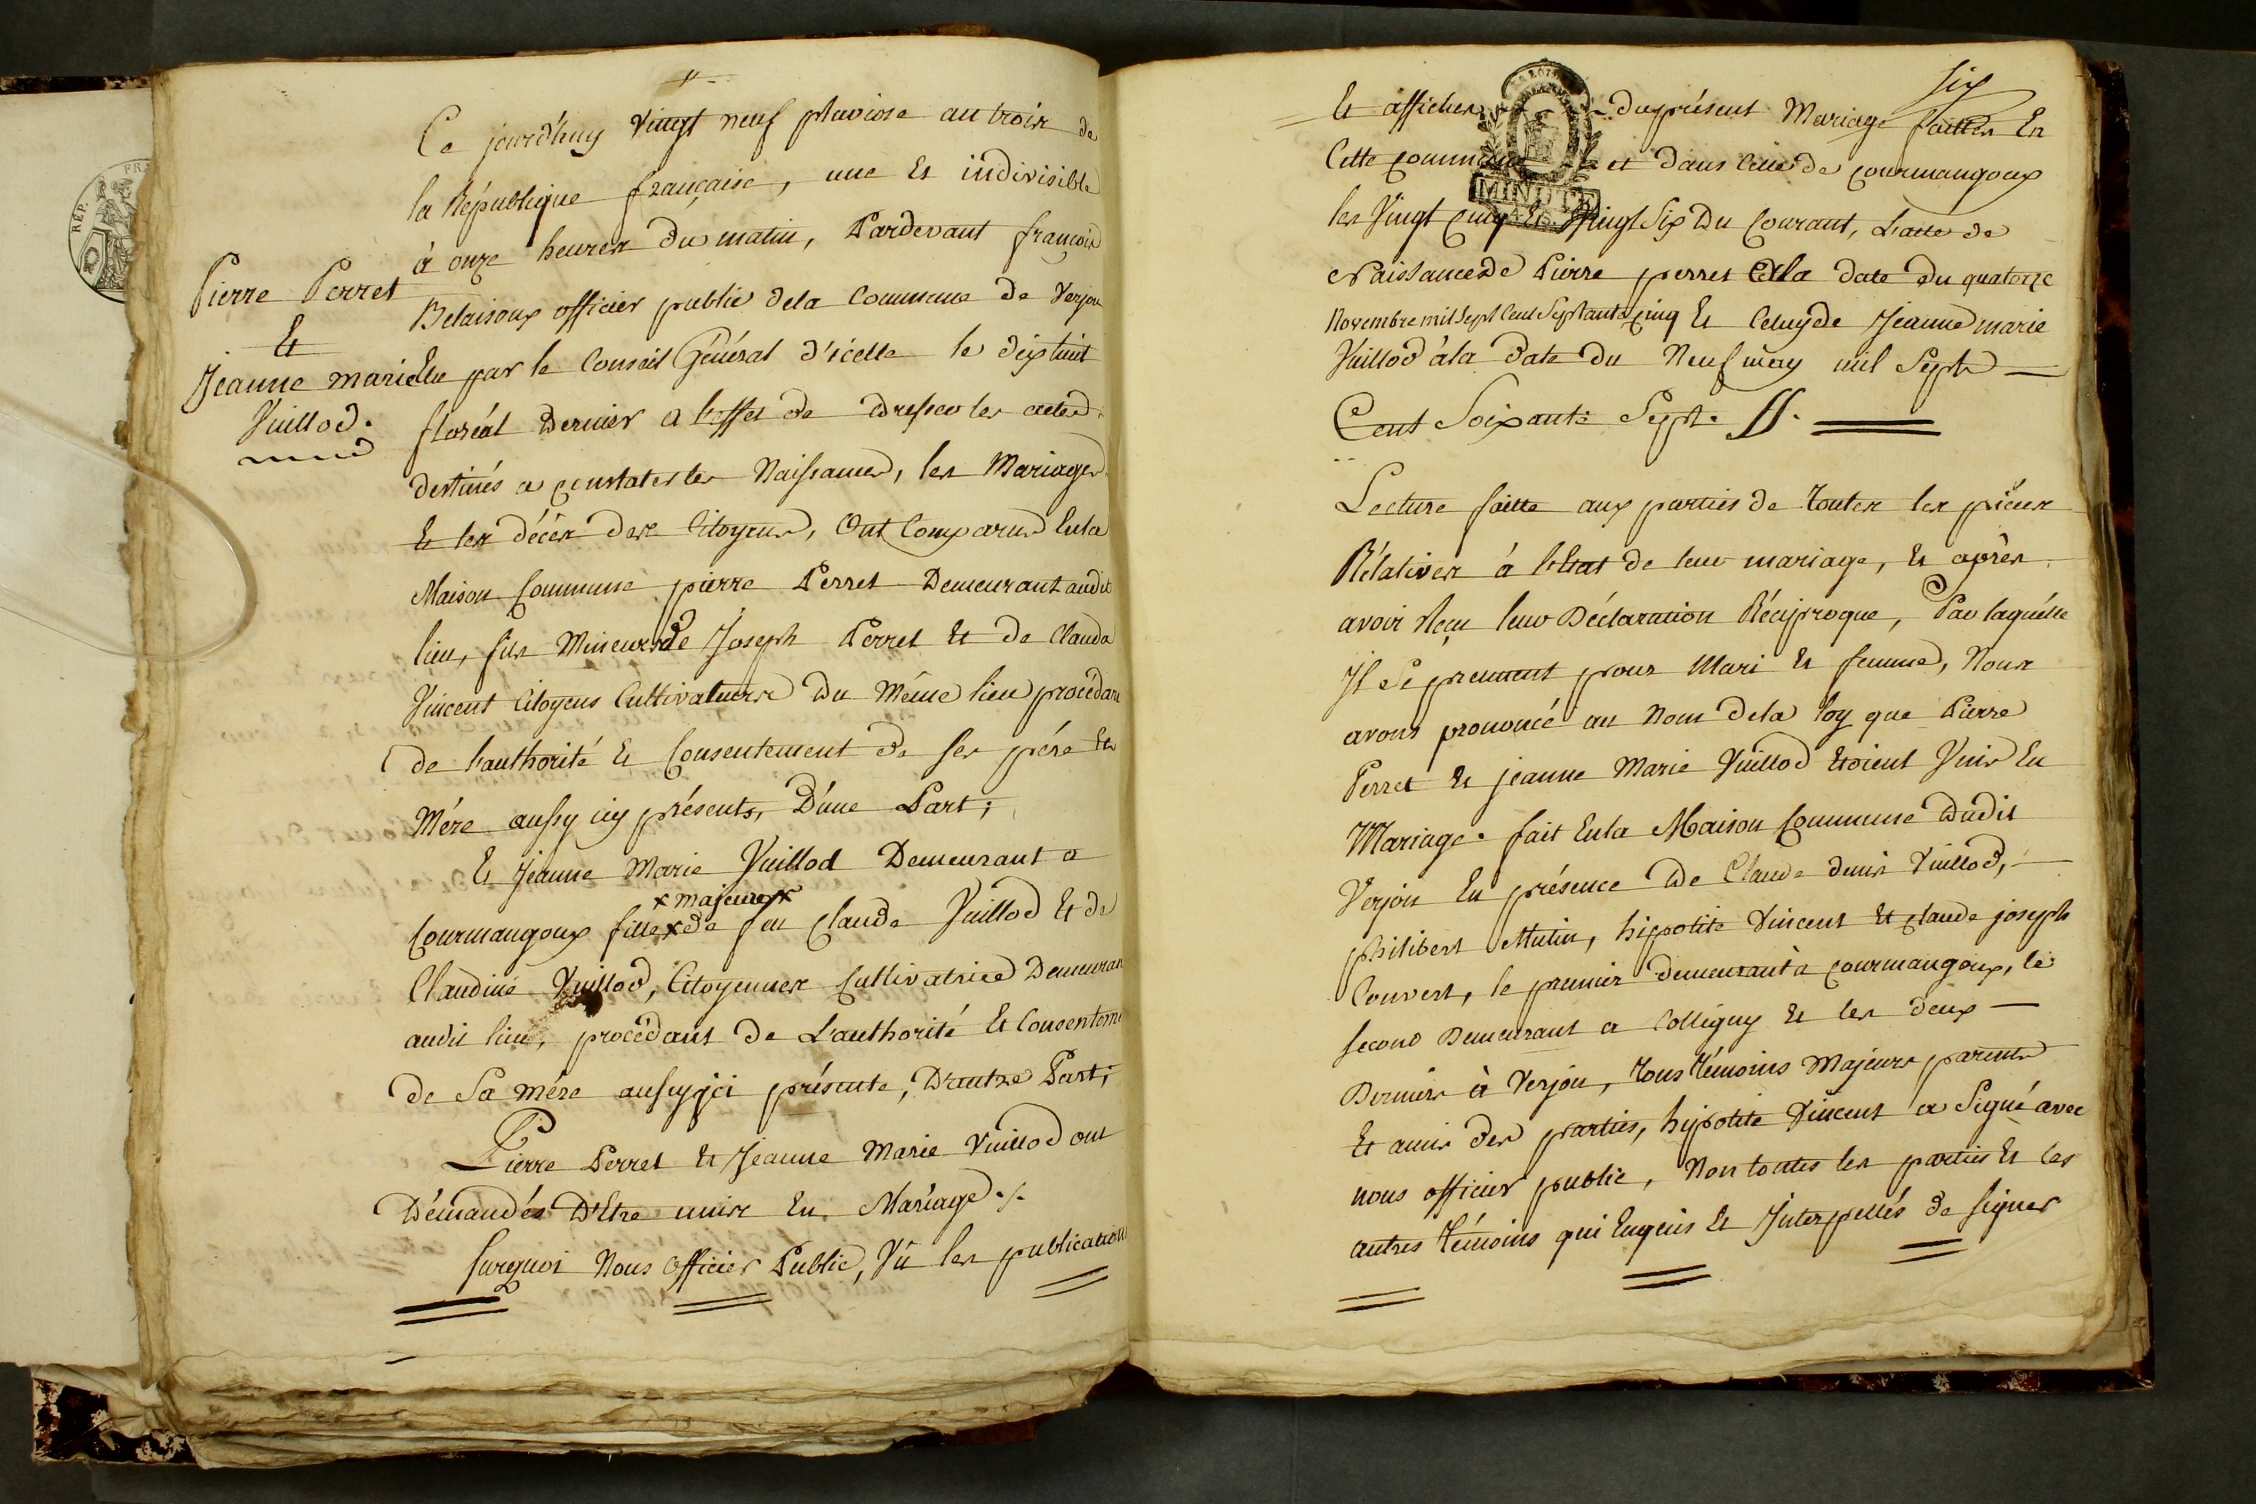 Pierre Perret
Et
Jeanne marie
Vuillod.
Ce jourd'huy Vingt neuf pluviose an trois de
la République française, une Et indivisible
à onze heures du matin, Pardevant françois
Belaisoux officier public dela Commune de Verjon
Elu par le Conseil Général d'icelle le dix huit
floréal Dernier a l'effet de dresser les actes
destinés a constater les Naissances, les Mariages
Et les décès des Citoyens, Ont Comparus Enla
Maison Commune pierre Perret Demeurant audit
lieu, fils Mineur de Joseph Perret Et de Claude
Vincent Citoyens Cultivateurs du Même lieu procédant
de l'authorité Et Consentement de ses pére Et
Mére aussy icy présents, D'une Part;
Et Jeanne Marie Vuillod Demeurant a
x majeure x
Courmangoux fille x de feu Claude Vuillod Et de
Claudine Vuillod, Citoyennes Cultivatrice Demeuran
audit lieu, procédant de L'authorité Et Consenteme
de Sa mére aussy ici présente, D'autre Part;
Pierre Perret Et Jeanne Marie Vuillod ont
Démandés D'Etre unis En Mariage ./.
Surquoi Nous Officier Public, Vû les publications
six
Et affiches du présent Mariage faittes En
Cette commune et dans celle de courmangoux
les Vingt cinq Et Vingt Six Du Courant, L'acte de
Naissance de Pierre perret à la date du quatorze
Novembre mil Sept Cent Septante cinq Et Celuy de Jeanne marie
Vuillod à la date du Neuf may mil Sept
Cent Soixante Sept.
MINUTE
Lecture faitte aux parties de toutes les piéces
Rélatives à l'état de leur mariage, Et après
avoir Reçu leur Déclaration Réciproque, Par laquélle
Il Se prennent pour Mari Et femme, Nous
avons prononcé au Nom dela loy que Pierre
Perret Et jeanne Marie Vuillod Etoient Unis En
Mariage. fait Enla Maison Commune dudit
Verjon En présence de Claude denis Vuillod,
philibert Mutin, hipolite Vincent Et claude joseph
Convert, le premier demeurant à courmangoux, le
second Demeurant a Colligny Et les deux
Derniers à Verjon, tous témoins Majeurs parents
Et amis des parties, hipolite Vincent a Signé avec
nous officier public, Non toutes les parties Et les
autres témoins qui Enquis Et Interpellés de signer